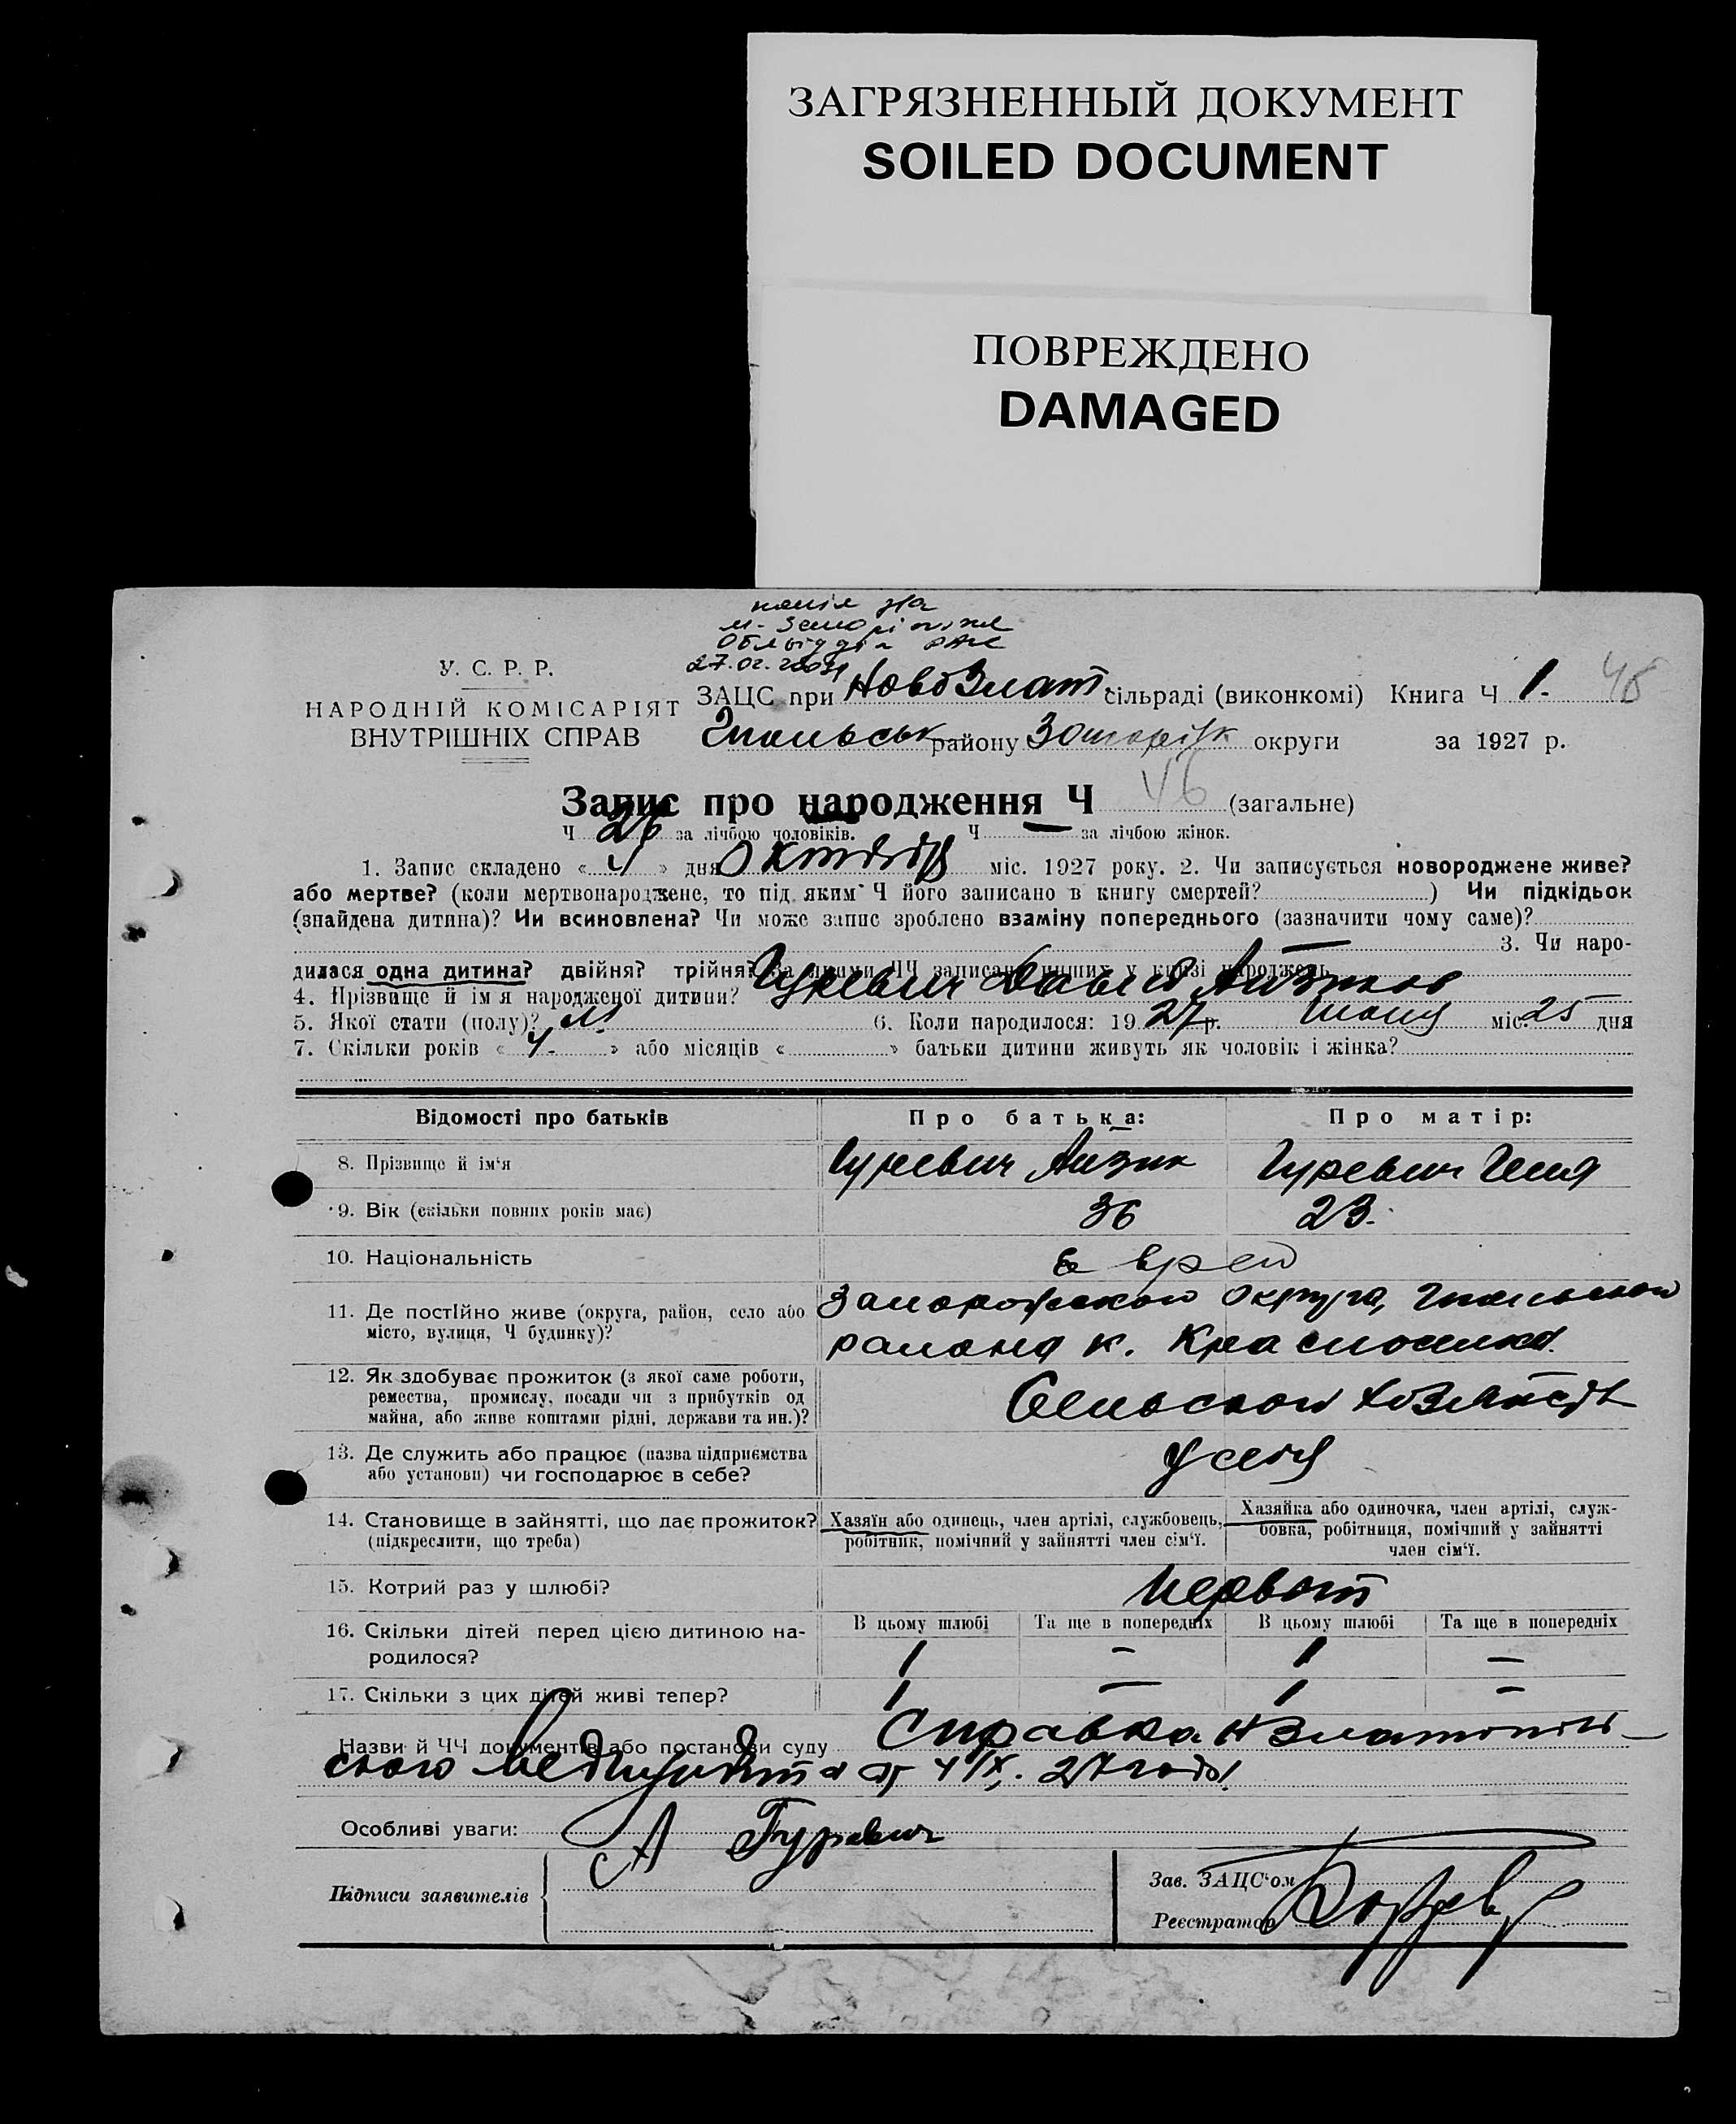 ЗАГРЯЗНЕННЫЙ ДОКУМЕНТ
SOILED DOCUMENT
ПОВРЕЖДЕНО
DAMAGED
копія
27.02.
У. С. Р. Р.
НАРОДНІЙ КОМІСАРІЯТ
ВНУТРІШНІХ СПРАВ
ЗАЦС при НовоЗлат. сільраді (виконкомі) Книга Ч 1. 46
району округи за 1927 р.
Запис про народження Ч 46 (загальне)
Ч 26 за лічбою чоловіків. Ч — за лічбою жінок.
1. Запис складено « 4 » дня Октября міс. 1927 року. 2. Чи записується новороджене живе?
або мертве? (коли мертвонароджене, то під яким Ч його записано в книгу смертей? ) Чи підкідьок
(знайдена дитина)? Чи всиновлена? Чи може запис зроблено взаміну попереднього (зазначити чому саме)?
— 3. Чи наро-
дилася одна дитина? двійня? трійня? За якими ЧЧ записано инших у книзі народжень
4. Прізвище й ім'я народженої дитини? Гуревич Давид Айзиков
5. Якої стати (полу)? М. 6. Коли народилося: 19 27 р. міс. 25 дня
7. Скільки років « 4. » або місяців « » батьки дитини живуть як чоловік і жінка?
Відомості про батьків Про батька: Про матір:
8. Прізвище й ім'я Гуревич Айзик Гуревич Геня
9. Вік (скільки повних років має) 36 23.
10. Національність еврей
11. Де постійно живе (округа, район, село або місто, вулиця, Ч будинку)? Запорожской округа,
района к. Красноселка
12. Як здобуває прожиток (з якої саме роботи,
ремества, промислу, посади чи з прибутків од
майна, або живе коштами рідні, держави та ин.)? Сельское
13. Де служить або працює (назва підприємства
або установи) чи господарює в себе? у себя
14. Становище в зайнятті, що дає прожиток?
(підкреслити, що треба)
Хазяїн або одинець, член артілі, службовець,
робітник, помічний у зайнятті член сім'ї.
Хазяйка або одиночка, член артілі, служ-
бовка, робітниця, помічний у зайнятті
член сім'ї.
15. Котрий раз у шлюбі? Первом
16. Скільки дітей перед цією дитиною на-
родилося?
В цьому шлюбі Та ще в попередніх В цьому шлюбі Та ще в попередніх
1 — 1 —
17. Скільки з цих дітей живі тепер? 1 — 1 —
Назви й ЧЧ документів або постанови суду Справка НЗлатополь-
ского Медпункта от 4/X. 27 года
Особливі уваги:
А Гуревич
Підписи заявителів
Зав. ЗАЦС'ом
Реєстратор